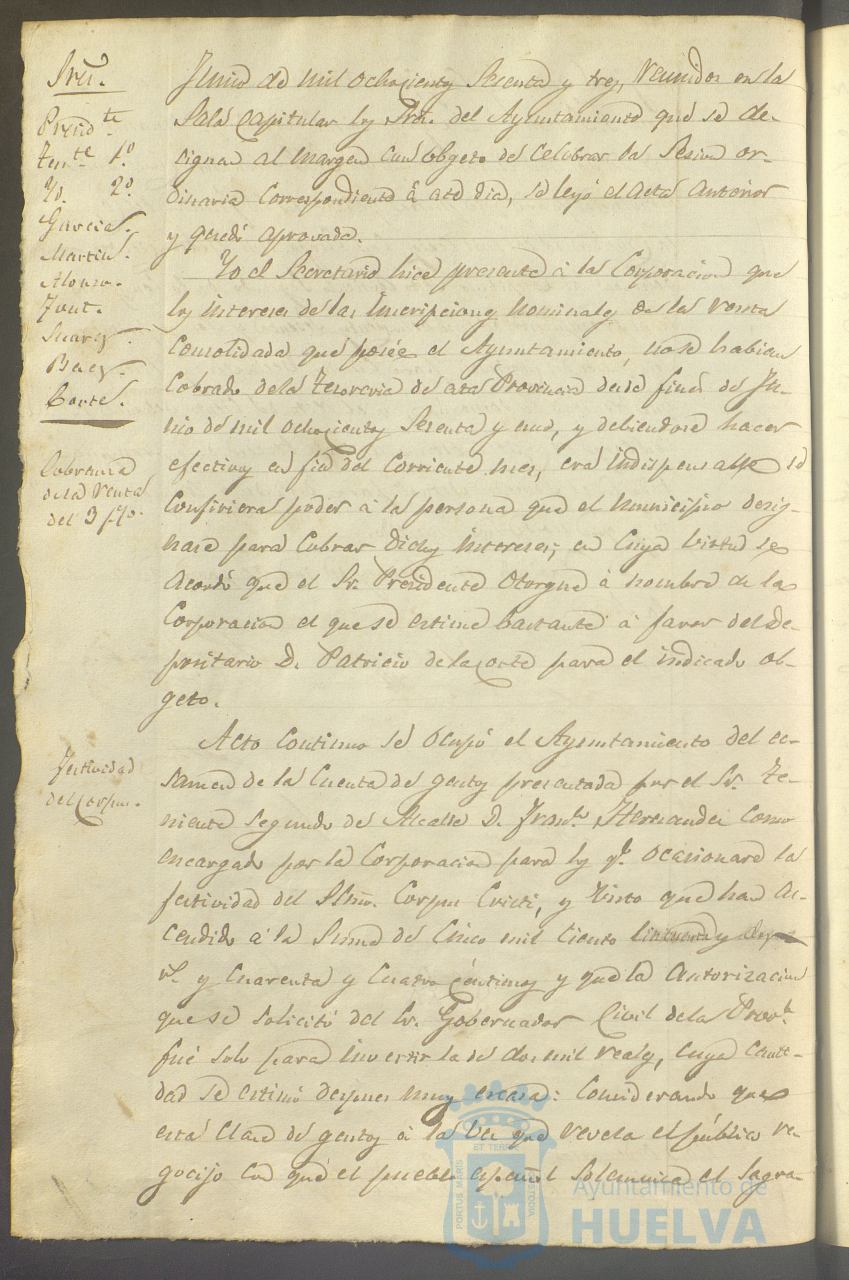 Sres.
Presid.te
Ten.te 1.º
Yd. 2.º
Garcia.
Martin.
Alonso.
Font.
Suarez.
Baez.
Corte.
Cobranza
de la renta
del 3 p%.
Festividad
del Corpus.
Junio de mil ochocientos sesenta y tres, reunidos en la
Sala Capitular los Sres. del Ayuntamiento que se de-
cignan al margen con obgeto de celebrar la Sesion or-
dinaria correspondiente á este dia, se leyó el acta anterior
y quedó aprovada.
Yo el Secretario hice presente á la Corporacion que
los intereses de las inscripciones nominales de la renta
consolidada que posée el Ayuntamiento, no se habian
cobrado de la Tesoreria de esta Provincia desde fines de Ju-
nio de mil ochocientos sesenta y uno, y debiendose hacer
efectivos en fin del corriente mes, era indispensable se
confiriera poder á la persona que el municipio desig-
nase para cobrar dichos intereses; en cuya virtud se
acordó que el Sr. Presidente otorgue á nombre de la
Corporacion el que se estime bastante á favor del De-
positario D. Patricio de la Corte para el indicado ob-
geto.
Acto continuo se ocupó el Ayuntamiento del ec-
samen de la cuenta de gastos presentada por el Sr. Te-
niente Segundo de Alcalde D. Fran.co Hernandez como
encargado por la Corporacion para los q.e ocasionare la
festividad del SSmo. Corpus Cristi, y visto que han as-
cendido á la suma de cinco mil ciento cincuenta y
r.s y cuarenta y cuatro céntimos y que la autorizacion
que se solicitó del Sr. Gobernador Civil de la Prov.a
fué solo para invertir la de dos mil reales, cuya canti-
dad se estimó despues muy escasa: Considerando que
esta clase de gastos á la vez que revela el público re-
gocijo con que el pueblo español solemniza el sagra-
PORTUS MARIS
ET TERRE
CUSTODIA
Ayuntamiento de
HUELVA